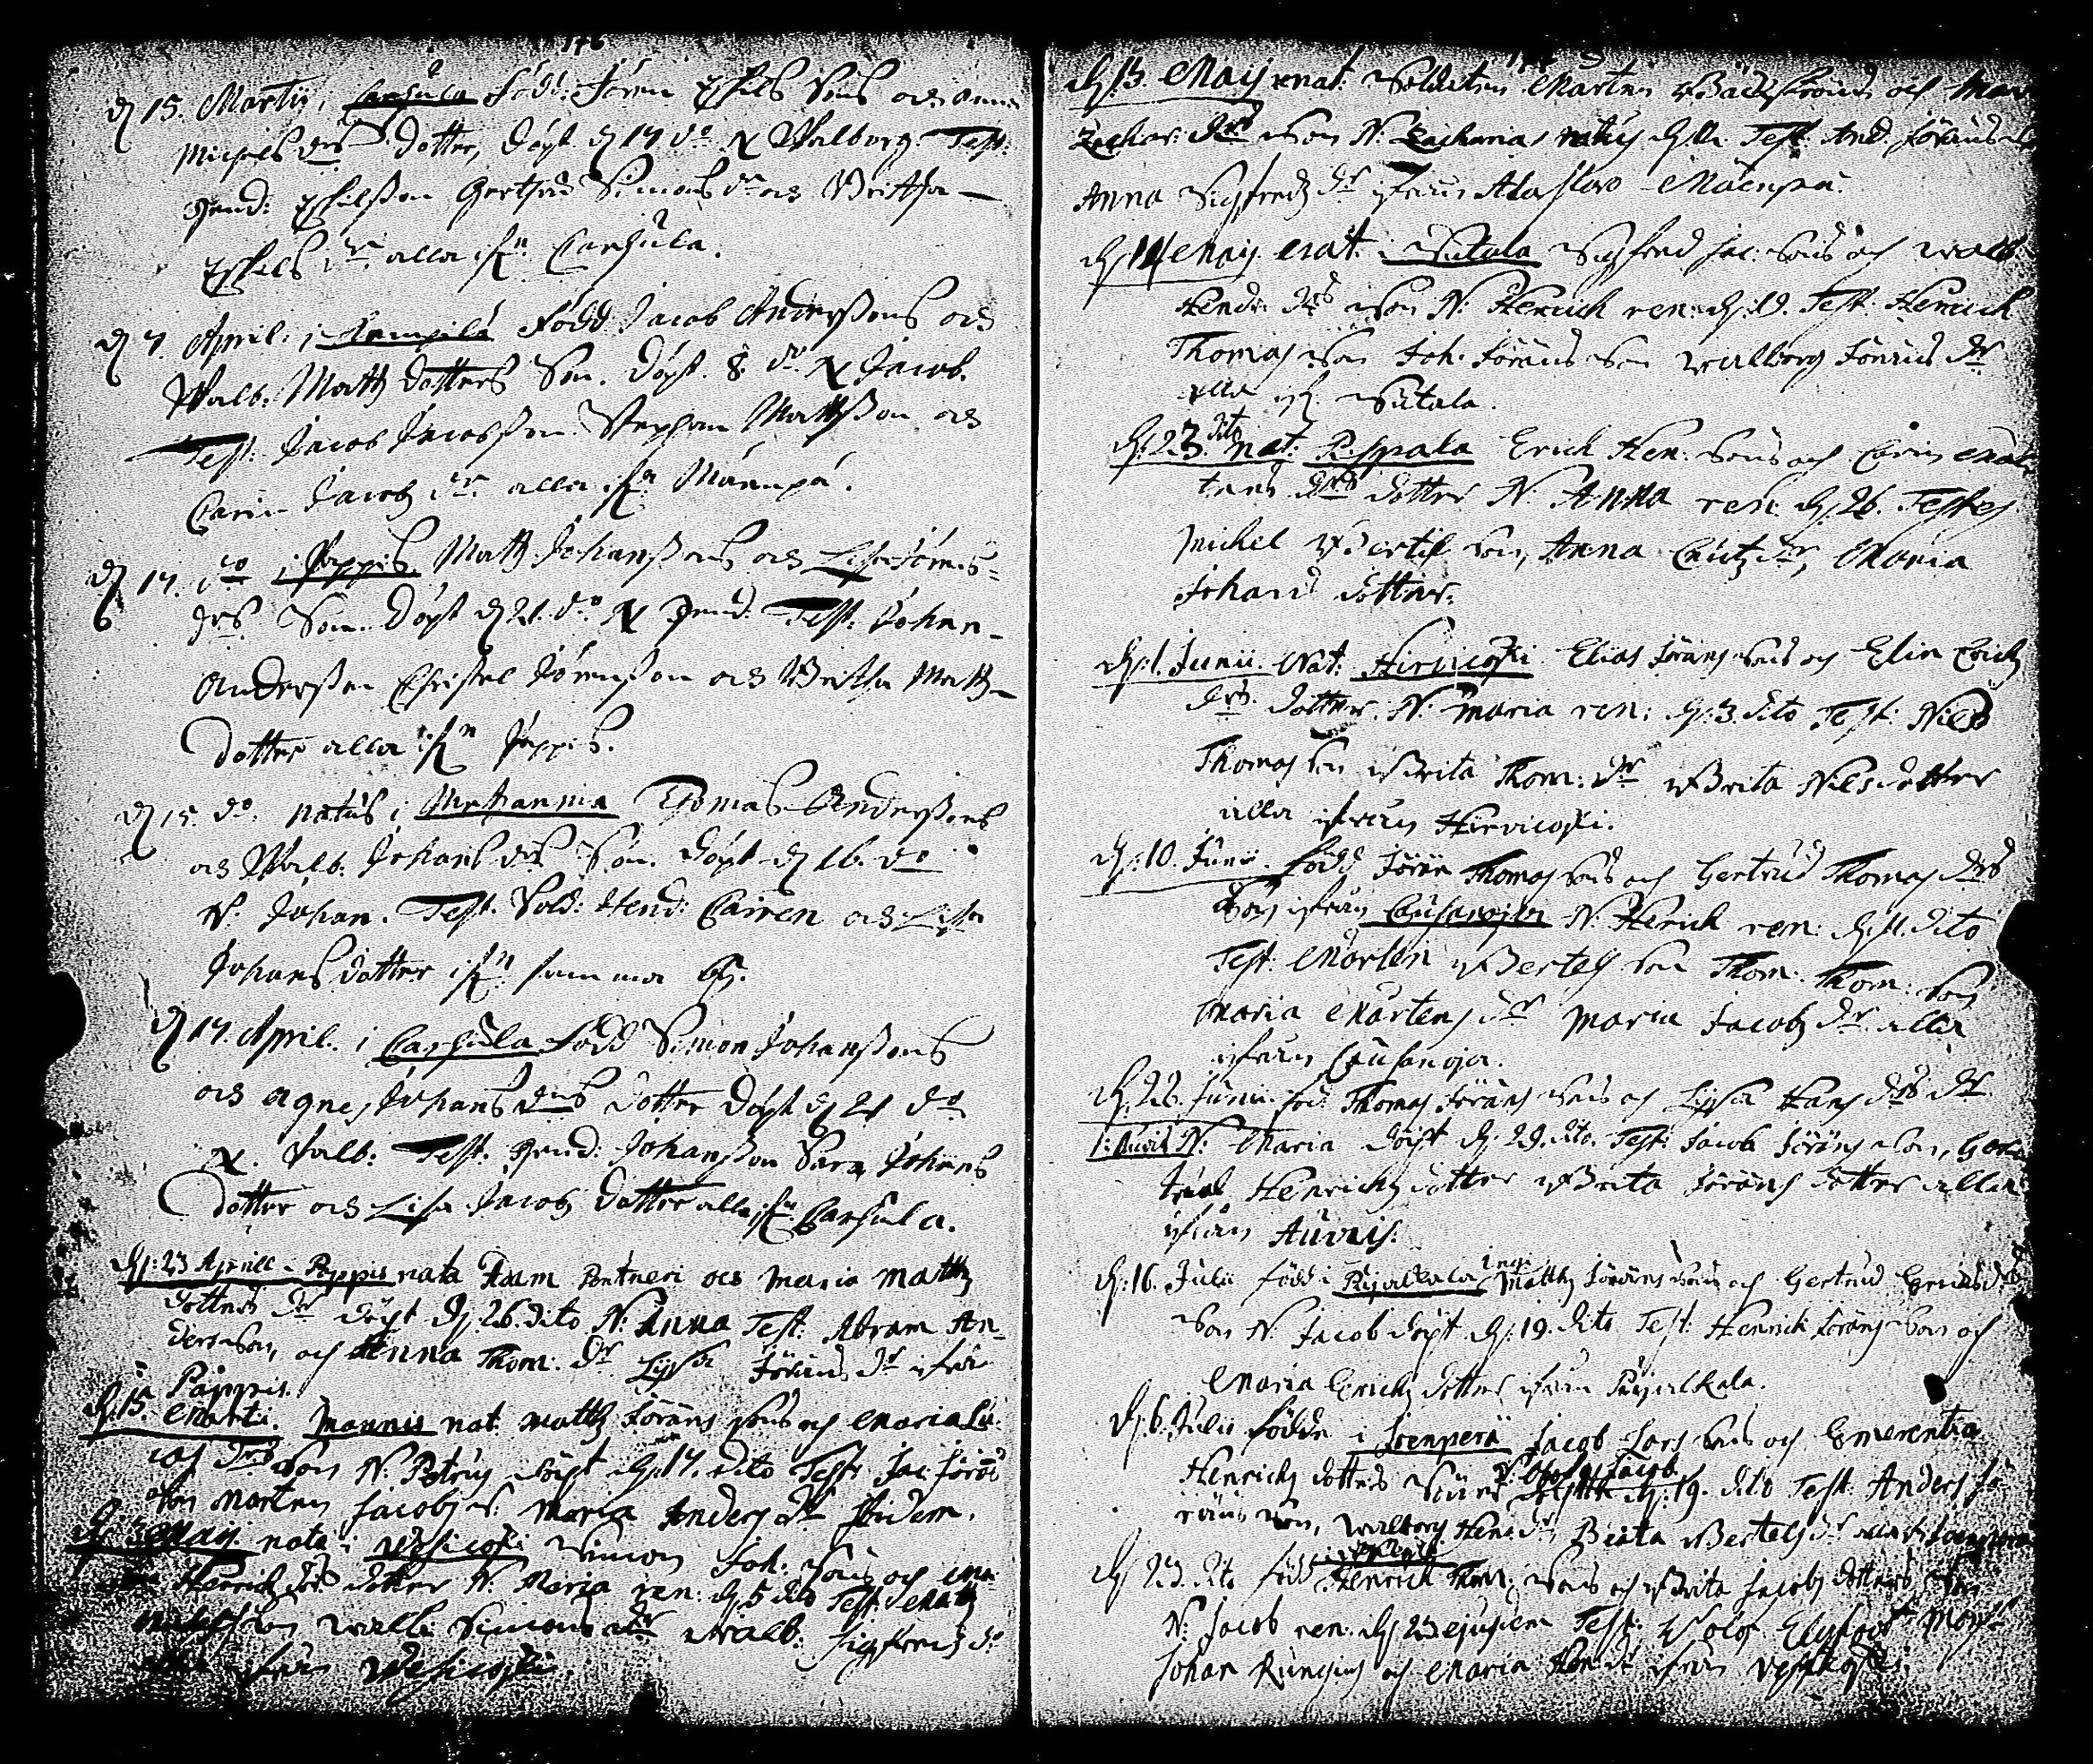 146
d 15. Martii, i Carhula född Jören Eskels Sons och Anna
Michels drs dotter, döpt d 17 do N Walborg. Test:
Hend: Eskilsson Gertrud Simons dr och Britta
Eskels dr alla ifrn Carhula.
d 7. April. i född Jacob Anderssons och
Walb. Matts dotters Son. döpt. 8. do N Jacob.
Test: Jacob Jacobsson Stephan Mattsson och
Carin Jacobs dr alla ifrn Mäenpä.
d 17. do i Pappis Matts Johanssons och Lisa
drs Son. Döpt d 21. do N Hend. Test: Johan
Andersson Christer Jörensson och Britta Matts
dotter alla ifrn Pappis.
d 15. do. natus i Thomas Anderssons
och Walb. Johans drs Son. döpt d 16. do
N. Johan. Test. Sold: Hend: Cairen och Lisa
Johans dotter ifrn samma by.
d 17. April. i Carhula född Simon Johanssons
och Agnes Johans drs dotter döpt d 21 do
N. Valb: Test. Hend: Johansson Sara Johans
dotter och Lisa Jacobs dotter alla ifrn Carhula.
d: 23 Aprill Pappis nata Adam Pontneri och Maria Matts
dotters dr döpt d: 26. dito N: Anna Test: Abram An-
dersson, och Anna Thom: dr Lisa Jörans dr ifrån
Pappis.
d 15. Martii. Mannis nat Matts Jörans sons och Maria Lu-
cas drs son N. Petrus döpt d: 17. dito Test: Jac: Jörans
son Morten Jacobs s: Maria Anders dr ibidem.
d 3 Maij. nata i Vesicoski Simon Joh: sons och Ma-
Henrichs drs dotter N: Maria ren: d 5 dito Test: Matts
son Walb: Simons dr Walb: Sigfreds dr
ifrån Vesicoski.
d 13. Maij nat: Soldaten Morten Bäckström och Mar
Zachar: drs son N: Zacharias natus Test: And. Jöransson
Anna Sigfreds dr ifrån Alastaro Mäenpä.
d 14 Maij nat: i Sutala Sigfred Jac: sons och Walb:
Hendr drs son N: Henrich ren: d: 19. Test: Henrich
Thomas son Joh. Jörans son Walborg Jörans dr
alla ifr Sutala.
d: 23. dito nat: Rispala Erich Hen: sons och Carin Mår-
tens drs dotter N: Anna ren: d: 26. Testes
Michel Bertil son, Anna Cnuts dr, Maria
Johans dotter.
d: 1. Junii Nat: Hirvicoski Elias Jörans sons och Elin Erichs
drs dotter. N: Maria ren: d: 3 dito Test: Nils
Thomas son Brita Thom: dr Brita Nils dotter
alla ifrån Hirvicoski.
d: 10. Junii. född Jören Thomas sons och Gertrud Thomas drs
son ifrån Cauhanoja N: Henrich ren: d: 11. dito
Test: Morten Bertels son Thom: Thom: son
Maria Mortens dr Maria Jacobs dr alla
ifrån Cauhanoja.
d: 26. Junii. föd: Thomas Jörans sons och Lisa Hans drs dr
i: Auvis N: Maria döpt d: 29. dito. Test: Jacob Jörans son, Ger-
trud Henrichs dotter Brita Jörans dotter alla
ifrån Auvis.
d: 16. Julii född i Pajulkala Matts Jörans sons och Gertrud Erichs drs
son N: Jacob döpt d: 19. dito Test: Henrich Jörans son och
Maria Erichs dotter ifrån Pajulkala.
d: 6. Julii födde i Joenperä Jacob Lars sons och Emerentia
Henrichs dotters Söner N: Olof och Jacob döptte d: 19. dito Test: Anders Jö-
rans son, Walborg Hen: dr, Brita Bertels dr alla fr Joenperä
d 23. dito född Henrich Thom: sons och Brita Jacobs dotters son
N: Jacob ren. d: 23 ejusdem Test: Olof Mons:
Johan Rungius och Maria Hen: dr ifrån Vesicoski.